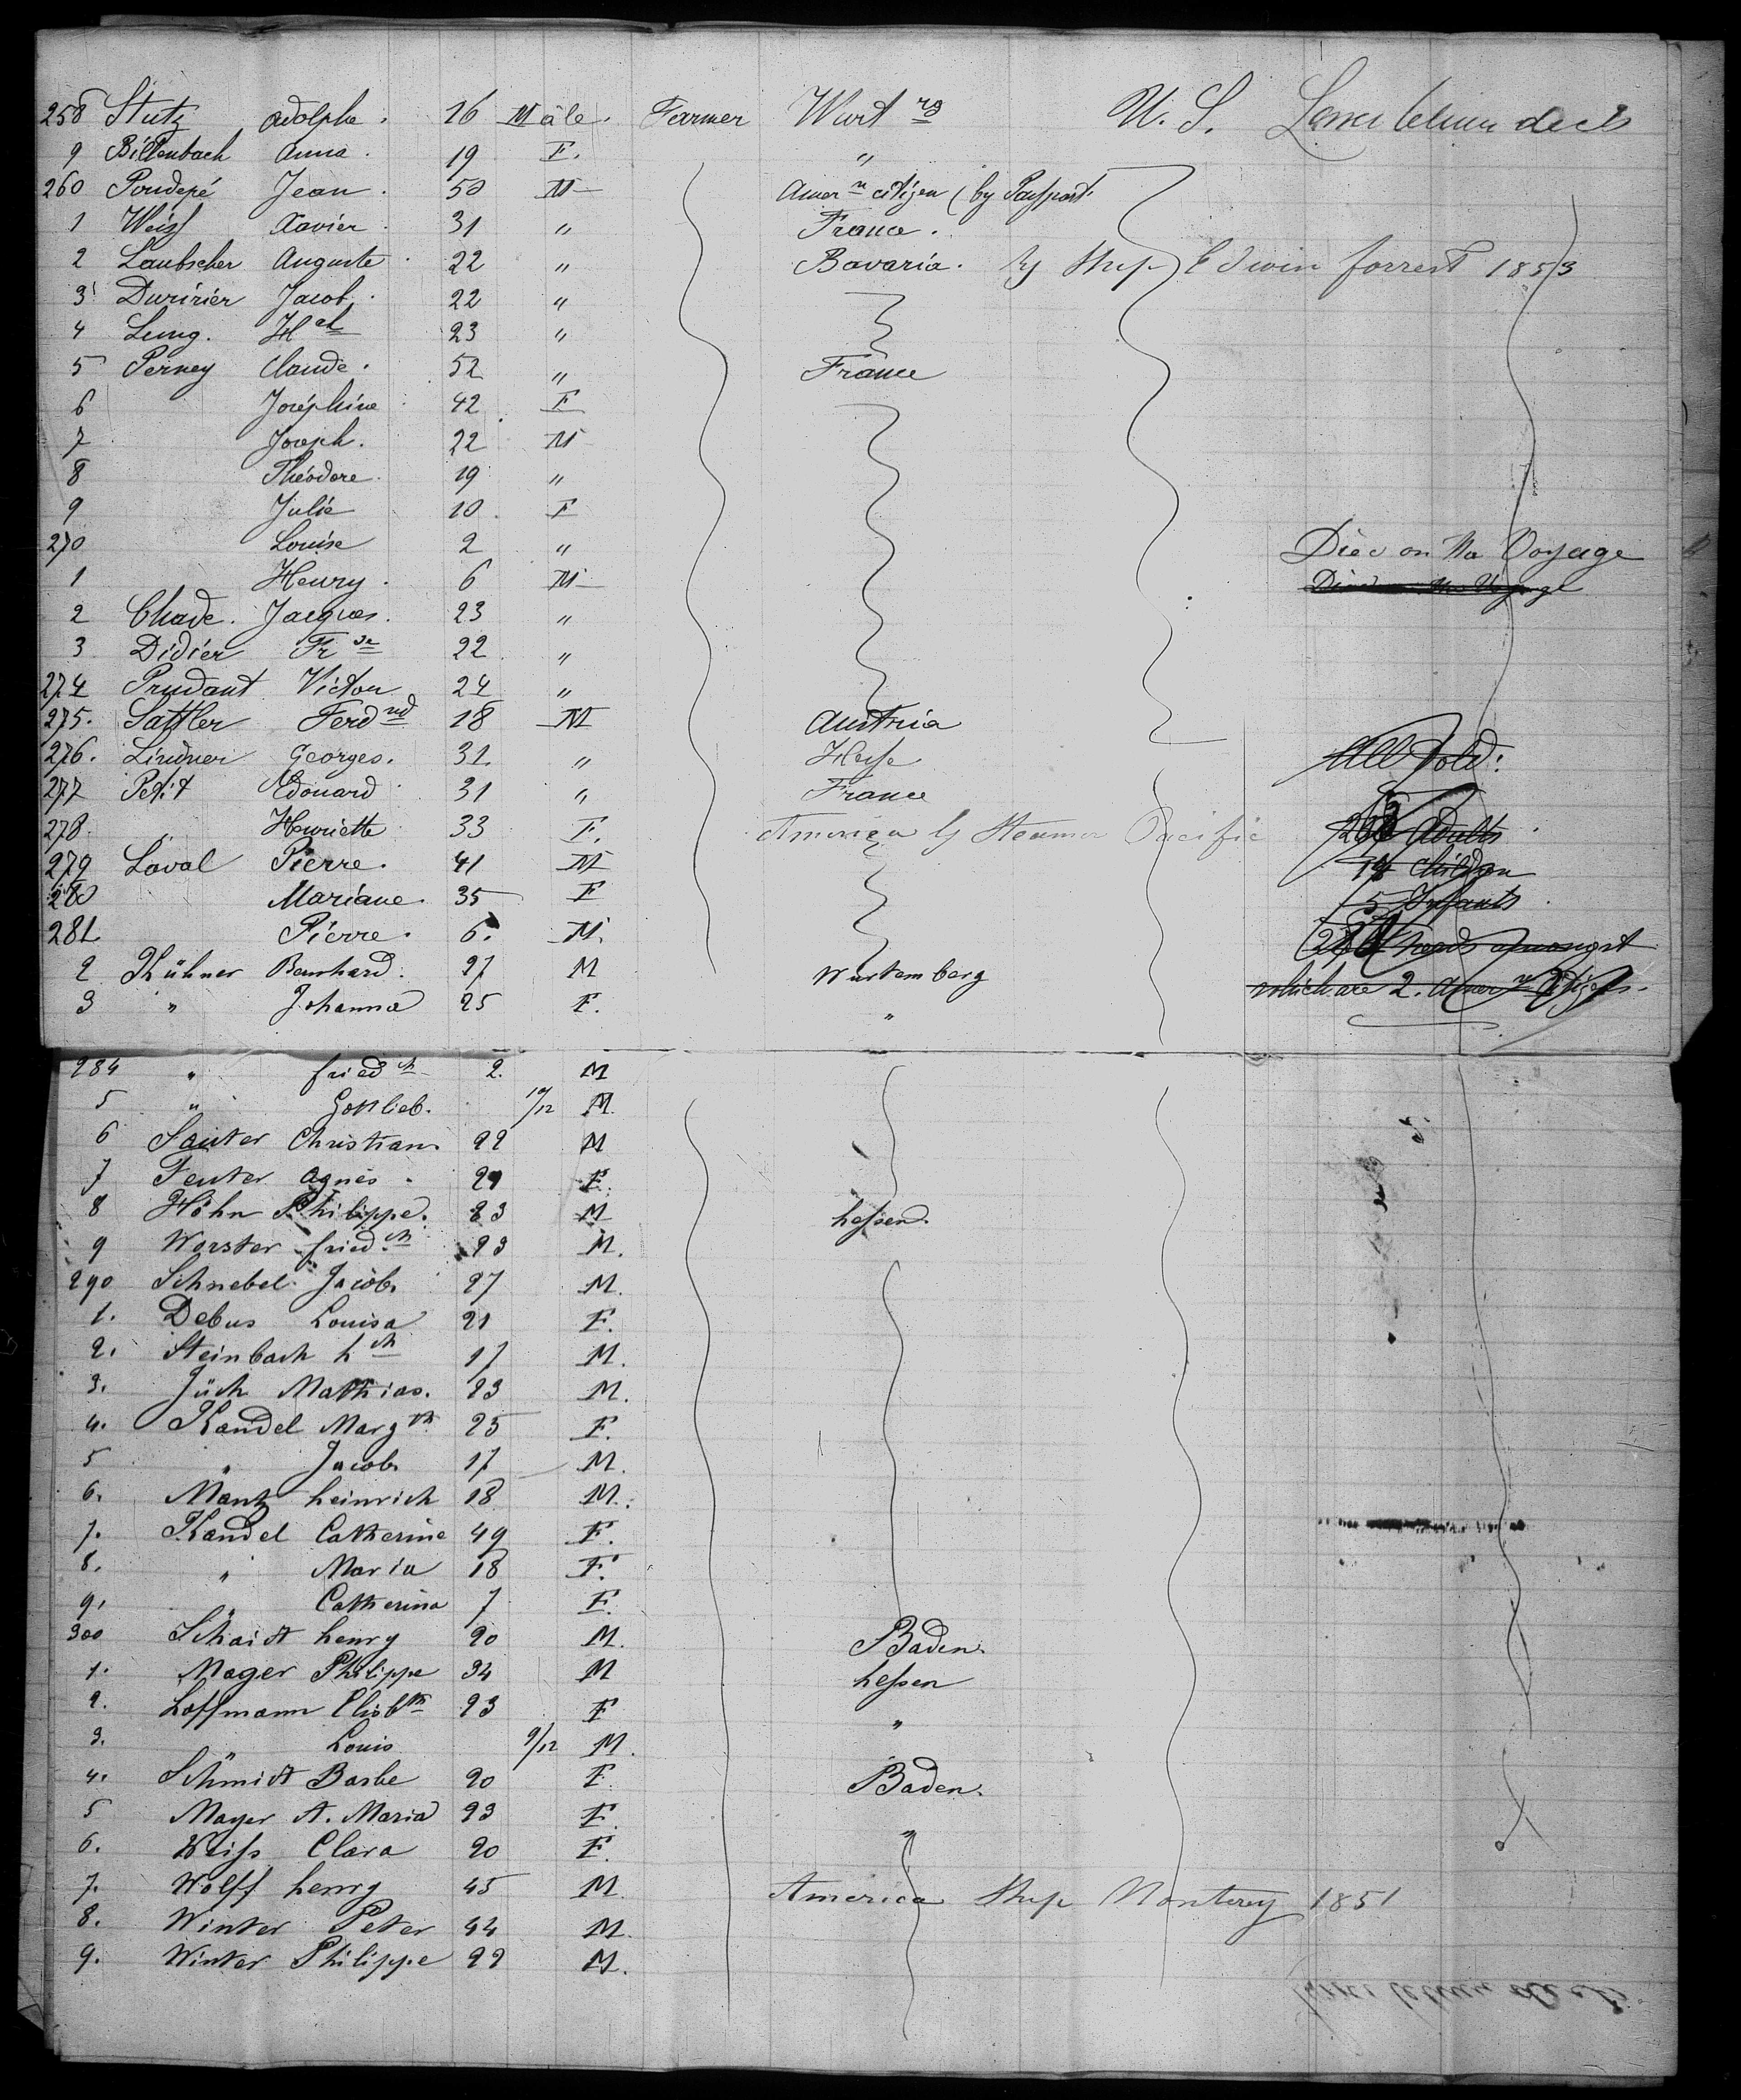 258 Stutz Adolphe. 16 Mâle. Farmer Wurt rg U. S.
9 Billenbach Anna. 19 F. "
260 Poudepé Jean. 50 M Amer n citizen (by Passport.
1 Weiss Xavier. 31 " France.
2 Laubscher Auguste. 22 " Bavaria. by Ship Edwin forrest 1853
3 Duririer Jacob. 22 "
4 Leung. 23 "
5 Perney Claude. 52 " France
6 Joséphine 42 F
7 Joseph. 22 M
8 Théodore. 19 "
9 Julie 10. F
270 Louise 2 " Died on the Voyage
1 Henry. 6 M Died on the Voyage
2 Chade. Jacques. 23 "
3 Didier Fr 22 "
274 Prudant Victor 24 "
275. Sattler Ferd nd 18 M Austria
276. Lindner Georges. 31. " Hesse All told:
277 Petit Edouard 31 " France
278. " Henriette 33 F. America by Steamer Pacific Adults
279 Laval Pierre. 41 M children
280 Mariane. 35 F 5 Infants
281 Pierre. 6. M. heads amongst
2 Kühner Bernhard. 27 M Wurtemberg which are 2. Amer n Citizens.
3 " Johanna 25 F. "
284 " fried ch 2. M
5 " Gottlieb. 10/12 M.
6 Sauter Christian 22 M
7 Feuter Agnes. 21 F.
8 Höhn Philippe. 23 M hessen.
9 Worster fried ch 23 M.
290 Schnebel Jacob 27 M.
1. Debus Louisa 21 F.
2. Steinbach h ch 17 M.
3. Jüch Mathias. 23 M.
4. Kandel Marg th 25 F.
5 " Jacob 17 M.
6. Mantz heinrich 18 M.
7. Kandel Catherine 49 F.
8. " Maria 18 F.
9. " Catherina 7 F.
300 Schaidt henry 20 M. Baden.
1. Mager Philippe 34 M hessen
2. Loffmann Elisb th 23 F "
3. " Louis 9/12 M.
4. Schmidt Barbe 20 F. Baden.
5 Mayer A. Maria 23 F. "
6. Weiss Clara 20 F.
7. Wolff henry 45 M. America Ship Monterey 1851
8. Winter Peter 44 M.
9. Winter Philippe 22 M.